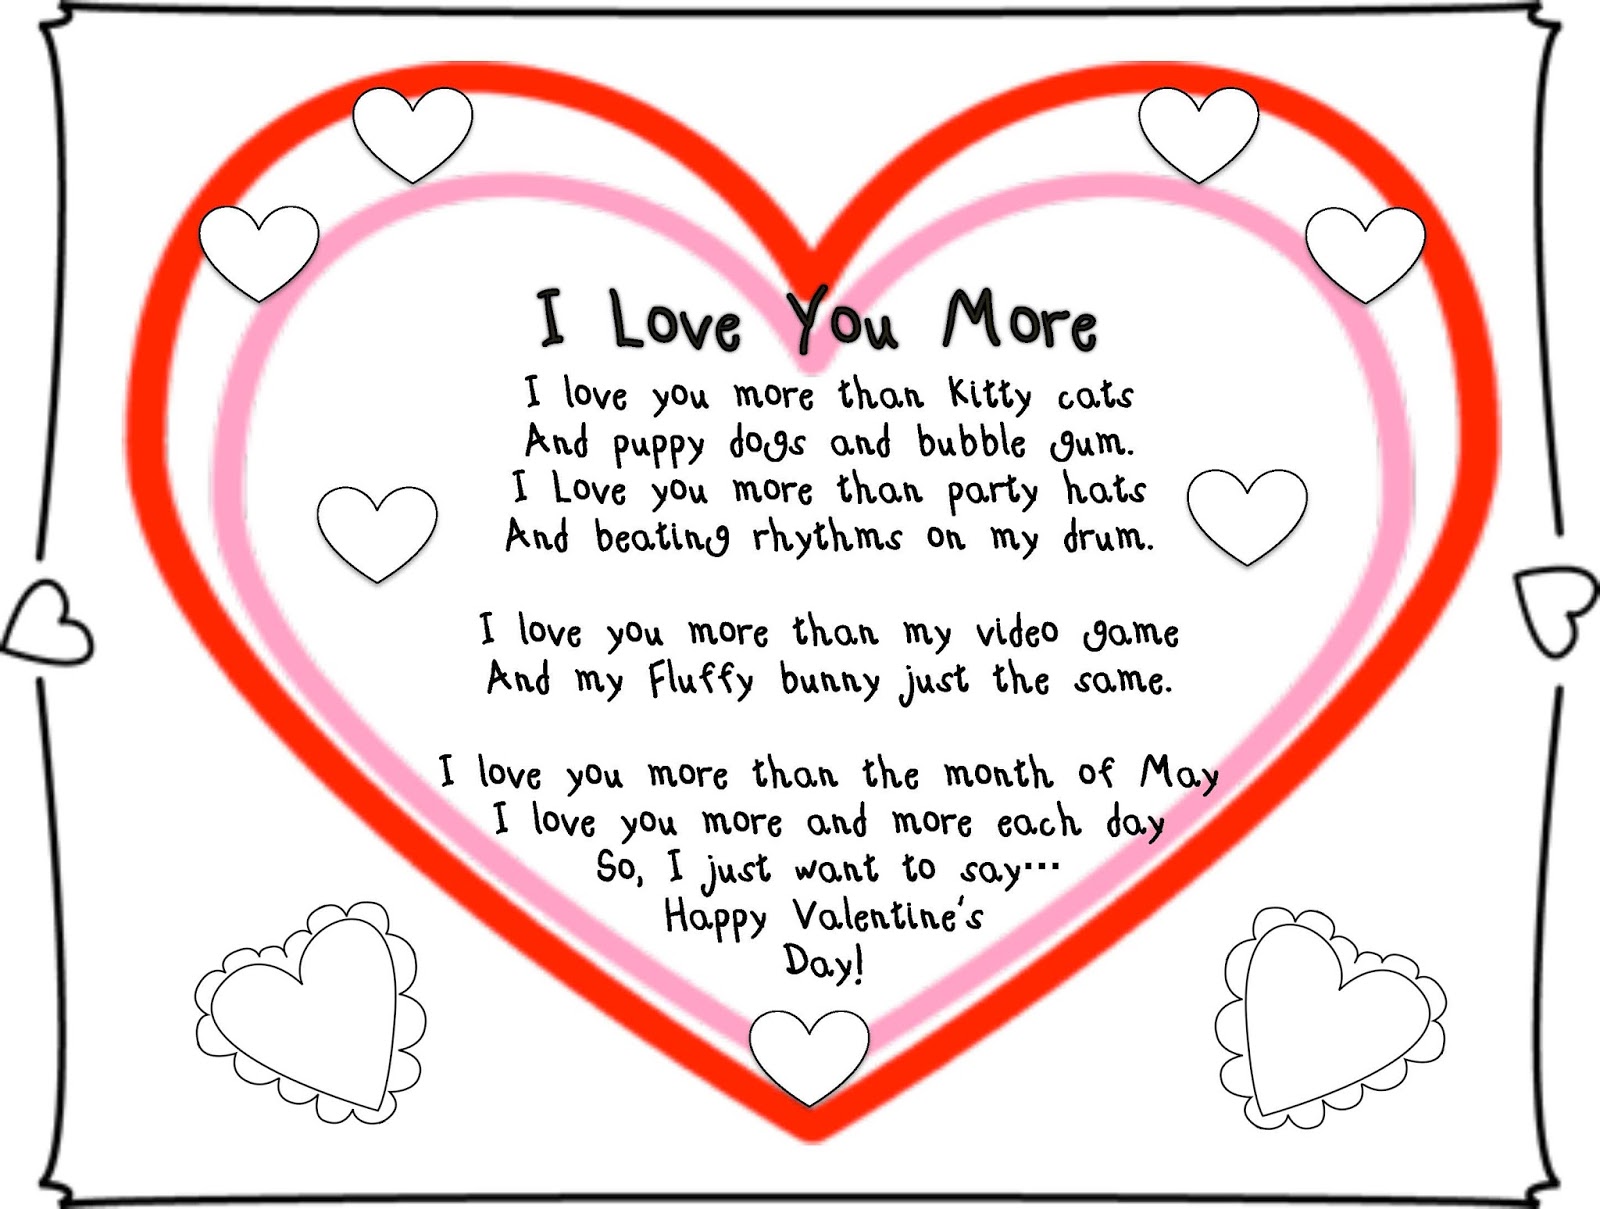 I Love You More
I love you more than kitty cats
And puppy dogs and bubble gum.
I Love you more than party hats
And beating rhythms on my drum.
I love you more than my video game
And my Fluffy bunny just the same.
I love you more than the month of May
I love you more and more each day
So, I just want to say...
Happy Valentine's
Day!